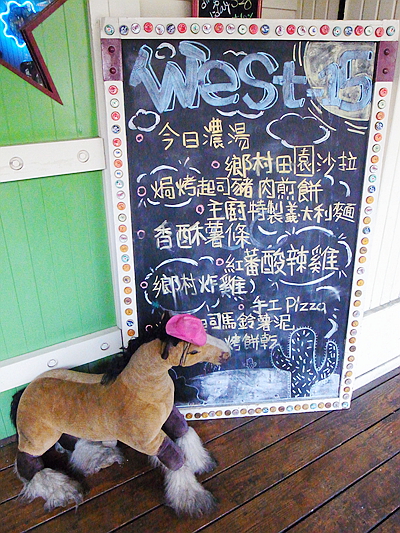 West 15
今日濃湯
鄉村田園沙拉
焗烤起司豬肉煎餅
主廚特製義大利麵
香酥薯條
紅蕃酸辣雞
鄉村炸雞
手工 Pizza
司馬鈴薯泥
烤餅乾